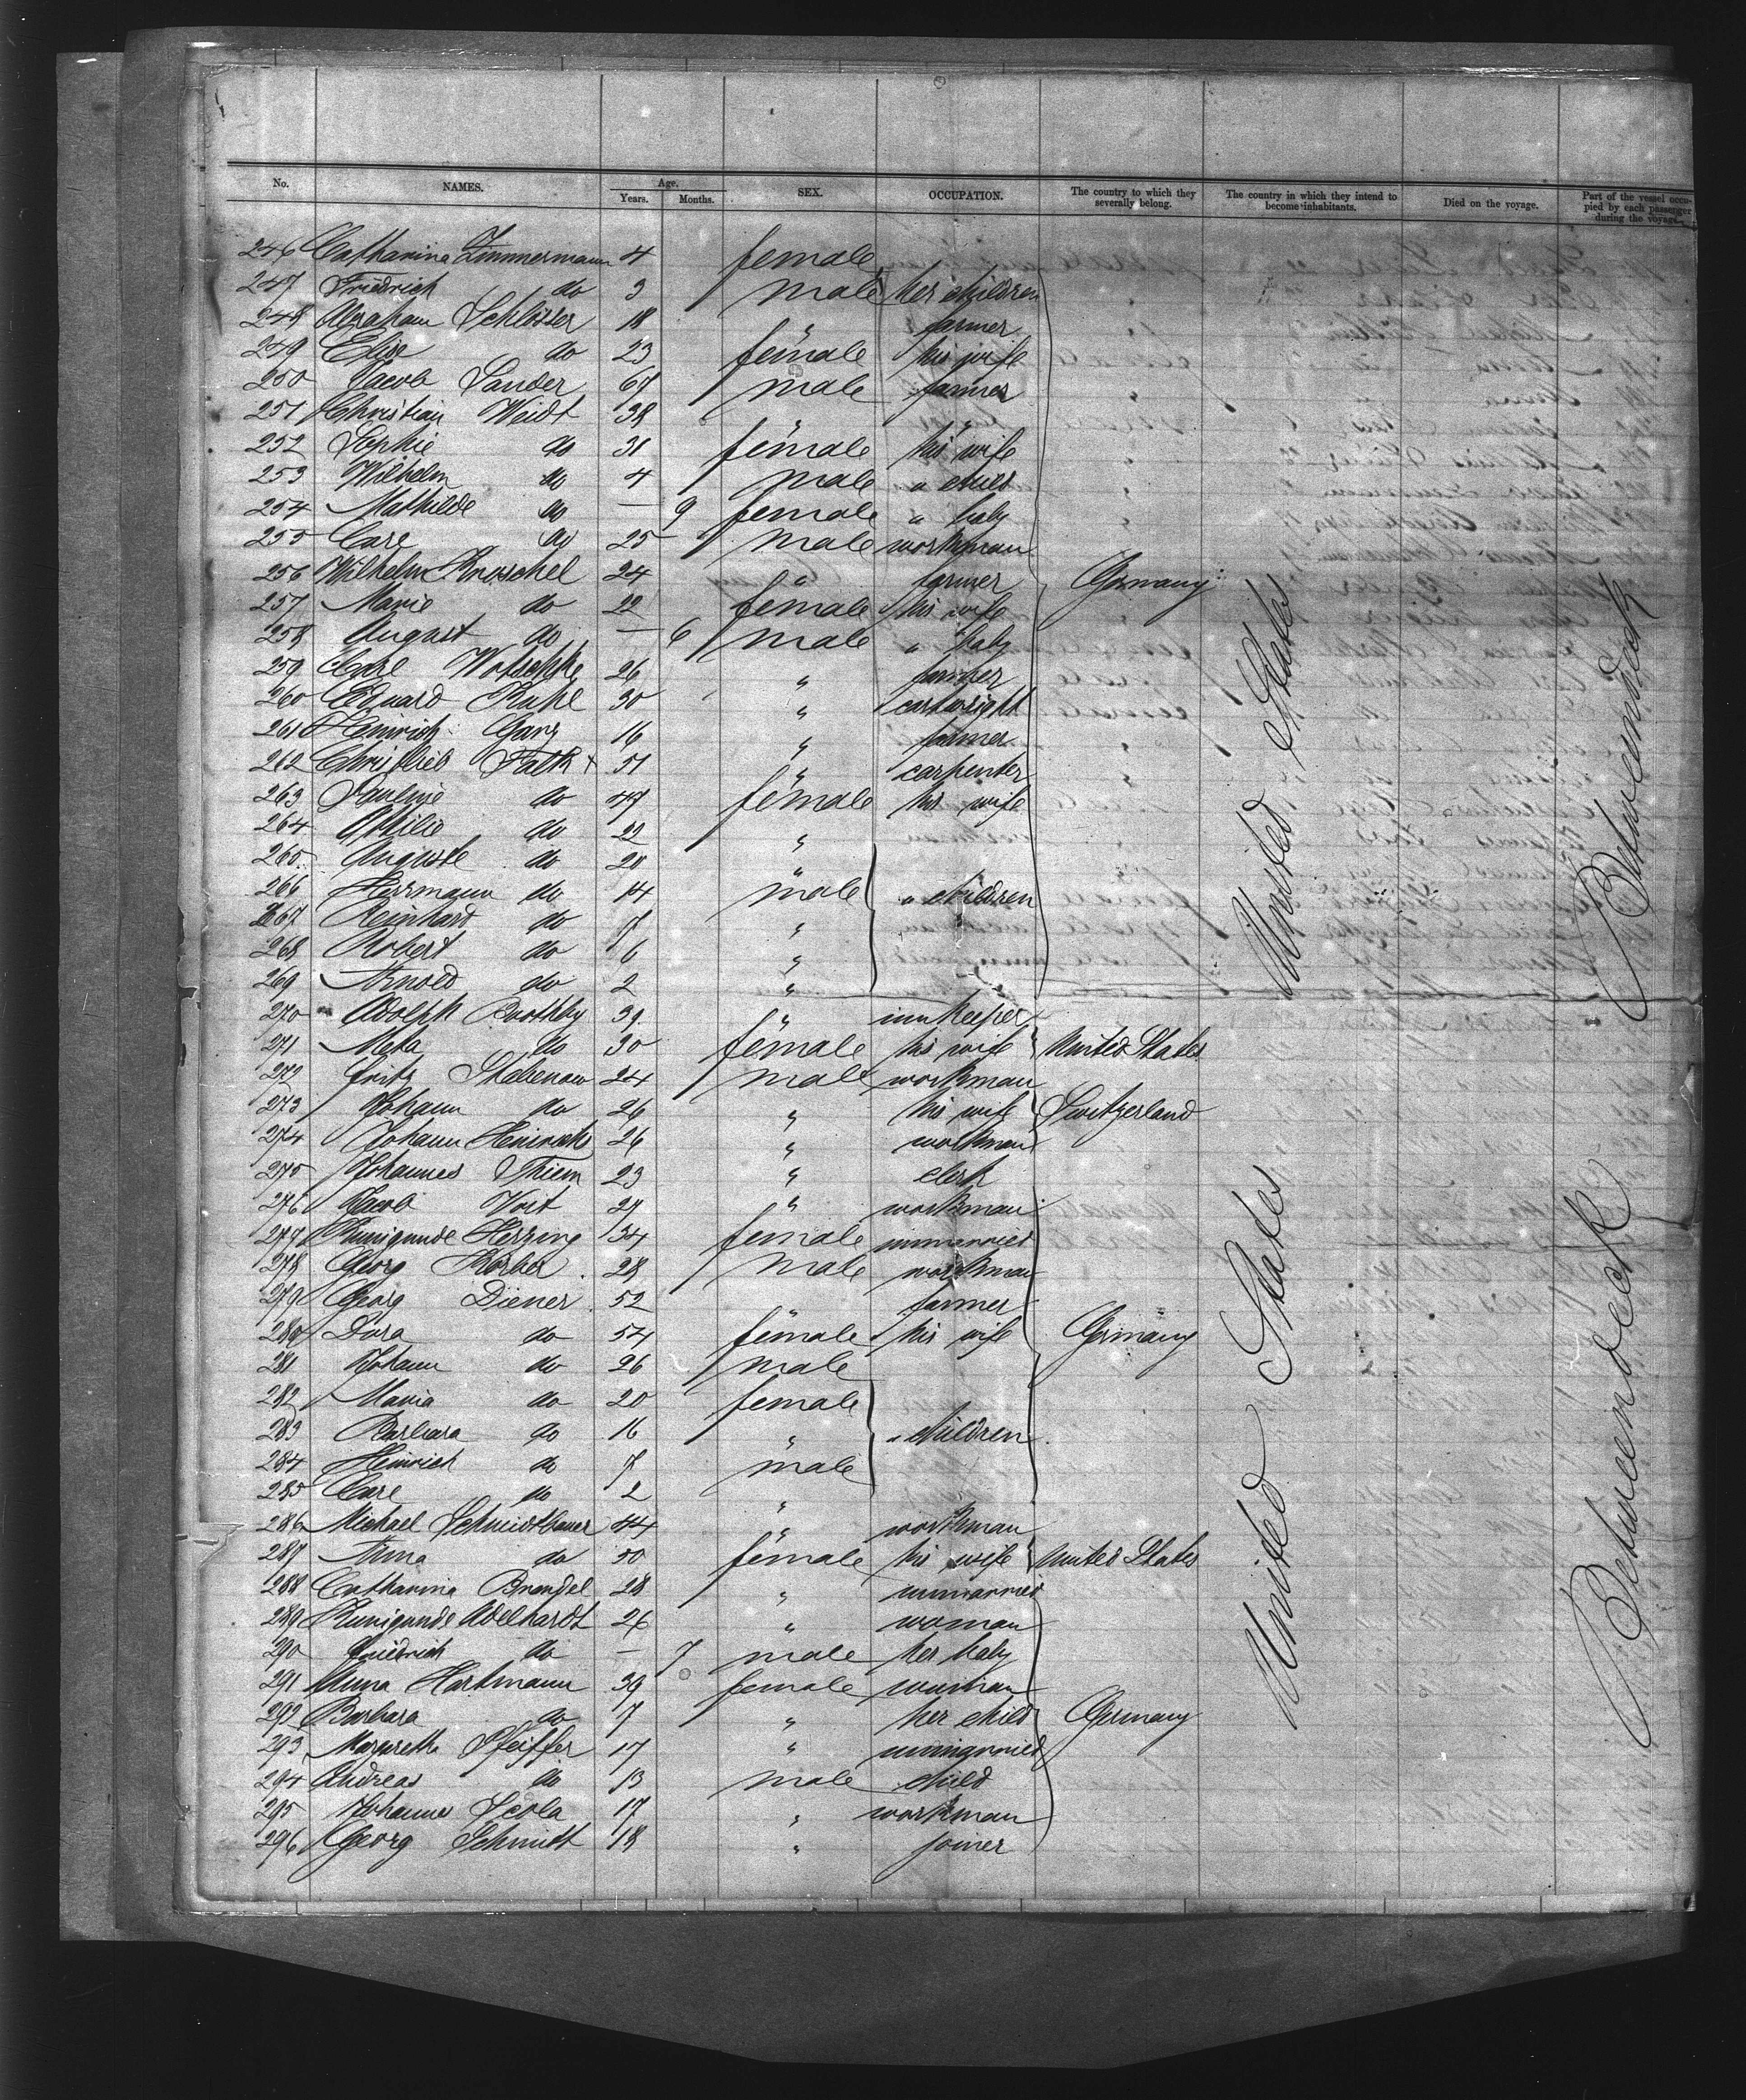 No. NAMES. Age. Years. Months. SEX. OCCUPATION. The country to which they severally belong. The country in which they intend to become inhabitants. Died on the voyage. Part of the vessel occupied by each passenger during the voyage.
246 Catharina Zimmermann 4 female
247 Friedrich do 3 male her children
248 Abraham Schlosser 18 " farmer
249 Elise do 23 female his wife
250 Jacob Sander 67 male farmer
251 Christian Weidt 38 " "
252 Sophie do 31 female his wife
253 Wilhelm do 4 male " child
254 Mathilde do — 9 female " baby
255 Carl do 25 male workman
256 Wilhelm Kroschel 24 " farmer Germany
257 Marie do 22 female his wife
258 August do — 6 male " baby
259 Carl Wotschke 26 " farmer
260 Eduard Ruhl 30 " cartwright
261 Heinrich Garz 16 " farmer
262 Christlieb Falk 51 " carpenter
263 Pauline do 47 female his wife
264 Ottilie do 22 "
265 Auguste do 20
266 Herrmann do 14 male " children
267 Reinhard do 7 "
268 Robert do 6 "
269 Arnold do 2 "
United States
Betweendeck
270 Adolph Boothby 39 " innkeeper
271 Meta do 30 female his wife United States
272 Fritz Stabenow 24 male workman
273 Johann do 26 " his wife Switzerland
274 Johann Heinrich 26 " workman
275 Johannes Thiem 23 " clerk
276 Jacob Voit 27 " workman
277 Kunigunde Herzing 34 female unmarried
278 Georg Körber 28 male workman
279 Georg Diener 52 " farmer
280 Dora do 54 female his wife Germany
281 Johann do 26 male
282 Maria do 20 female
283 Barbara do 16 " " children
284 Heinrich do 7 male
285 Carl do 2 "
286 Michael Schmidtbauer 44 " workman
287 Anna do 50 female his wife United States
288 Catharina Brendel 28 " unmarried
289 Kunigunde Adelhardt 26 " woman
290 Friedrich do — 7 male her baby
291 Anna Hartmann 39 female woman
292 Barbara do 7 " her child Germany
293 Margaretha Pfeiffer 17 " unmarried
294 Andreas do 13 male child
295 Johannes Scola 17 " workman
296 Georg Schmidt 18 " joiner
United States
Betweendeck